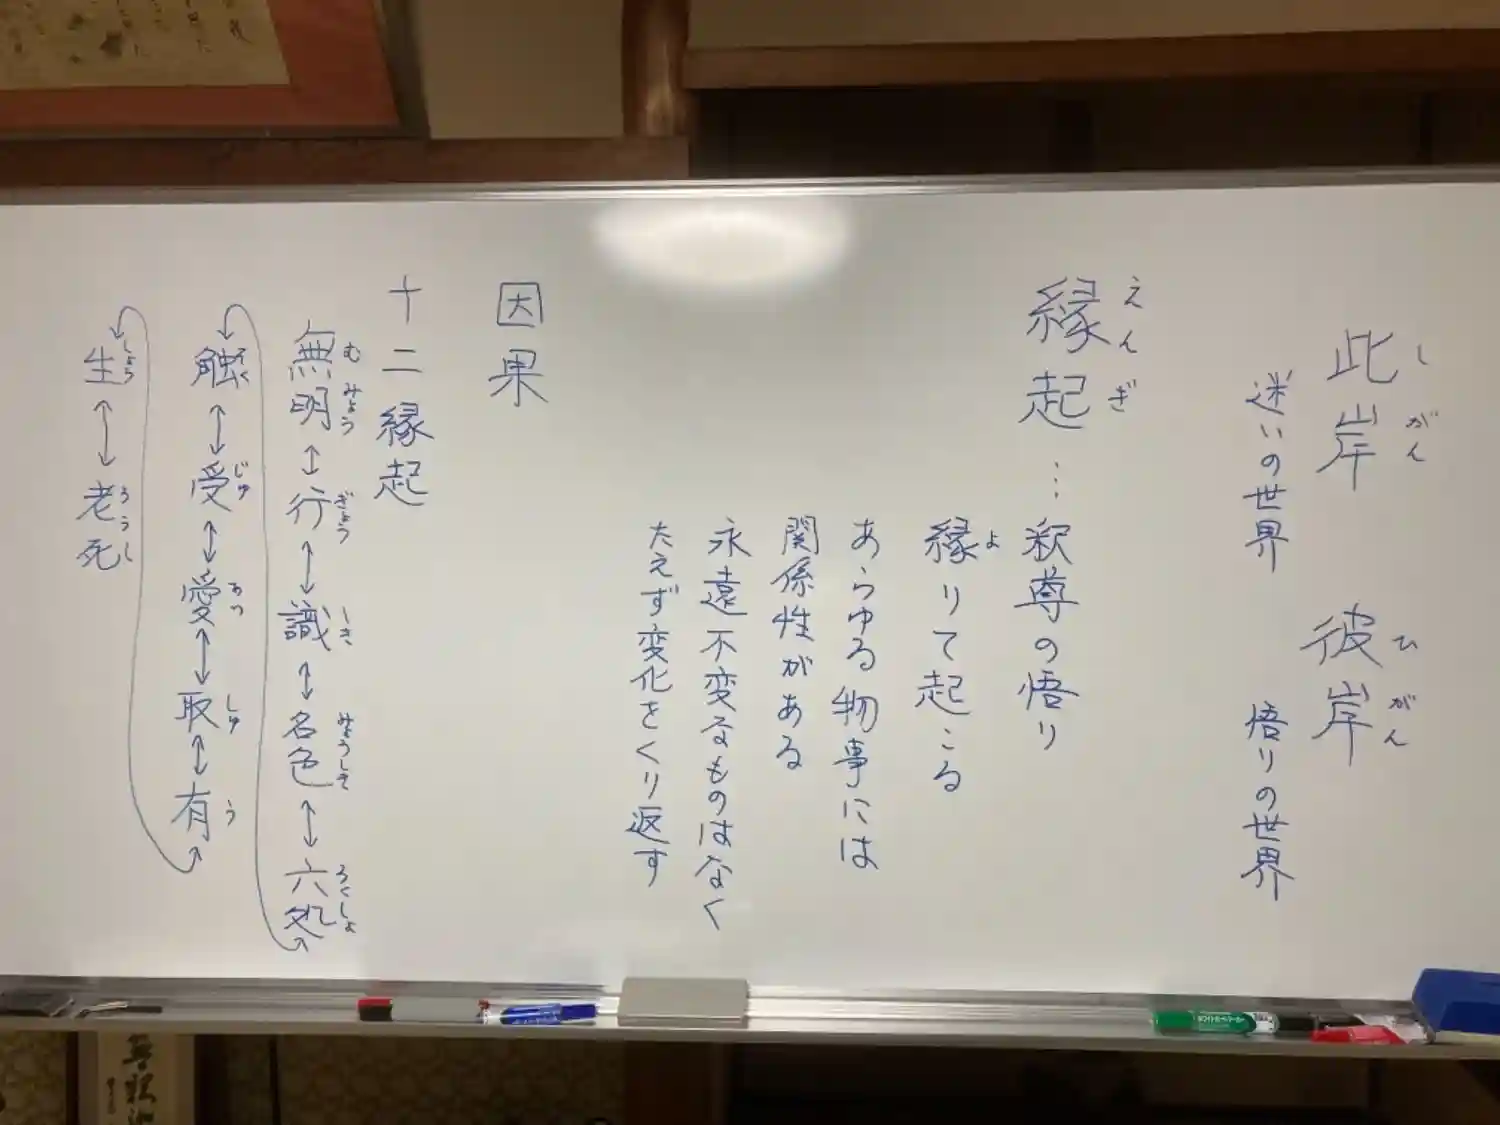 此岸 彼岸
しがん ひがん
迷いの世界 悟りの世界
えんぎ
縁起…釈尊の悟り
縁りて起こる
よ
あらゆる物事には
関係性がある
永遠不変なものはなく
たえず変化をくり返す
因果
十二縁起
むみょう ぎょう しき みょうしき ろくしょ
無明↔行↔識↔名色↔六処
そく じゅ あい しゅ う
触↔受↔愛↔取↔有
しょう ろうし
生↔老死